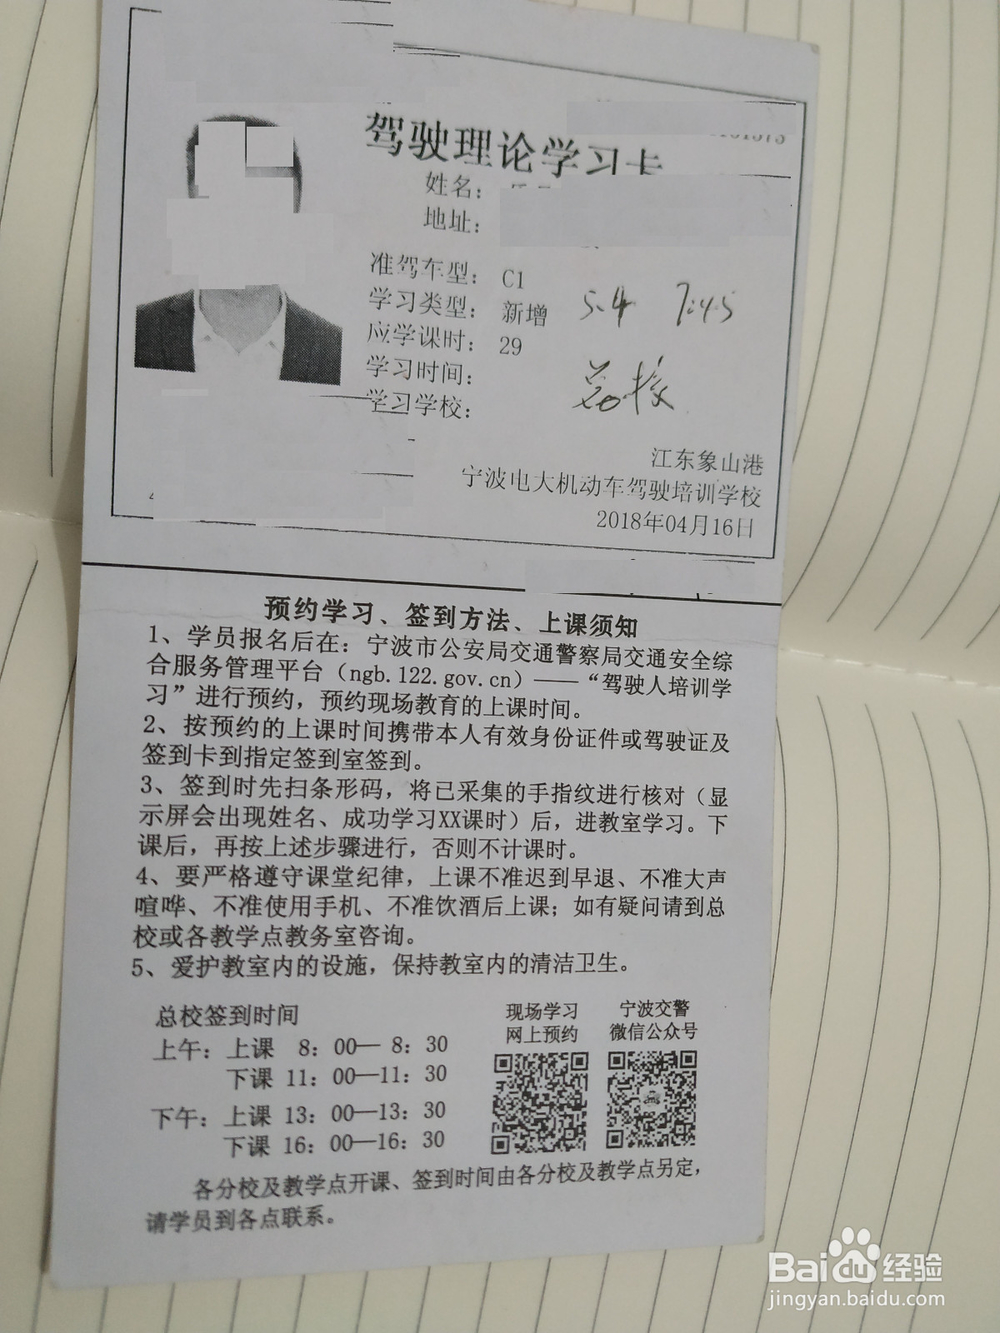 驾驶理论学习卡
姓名：
地址：
准驾车型： C1
学习类型： 新增 5.4 7:45
应学课时： 29
学习时间：
学习学校： 总校
江东象山港
宁波电大机动车驾驶培训学校
2018年04月16日
预约学习、签到方法、上课须知
1、学员报名后在：宁波市公安局交通警察局交通安全综
合服务管理平台（ngb.122.gov.cn）——“驾驶人培训学
习”进行预约，预约现场教育的上课时间。
2、按预约的上课时间携带本人有效身份证件或驾驶证及
签到卡到指定签到室签到。
3、签到时先扫条形码，将已采集的手指纹进行核对（显
示屏会出现姓名、成功学习XX课时）后，进教室学习。下
课后，再按上述步骤进行，否则不计课时。
4、要严格遵守课堂纪律，上课不准迟到早退、不准大声
喧哗、不准使用手机、不准饮酒后上课；如有疑问请到总
校或各教学点教务室咨询。
5、爱护教室内的设施，保持教室内的清洁卫生。
总校签到时间
上午：上课 8：00—8：30
下课 11：00—11：30
下午：上课 13：00—13：30
下课 16：00—16：30
现场学习
网上预约
宁波交警
微信公众号
各分校及教学点开课、签到时间由各分校及教学点另定，
请学员到各点联系。
Baidu经验
jingyan.baidu.com